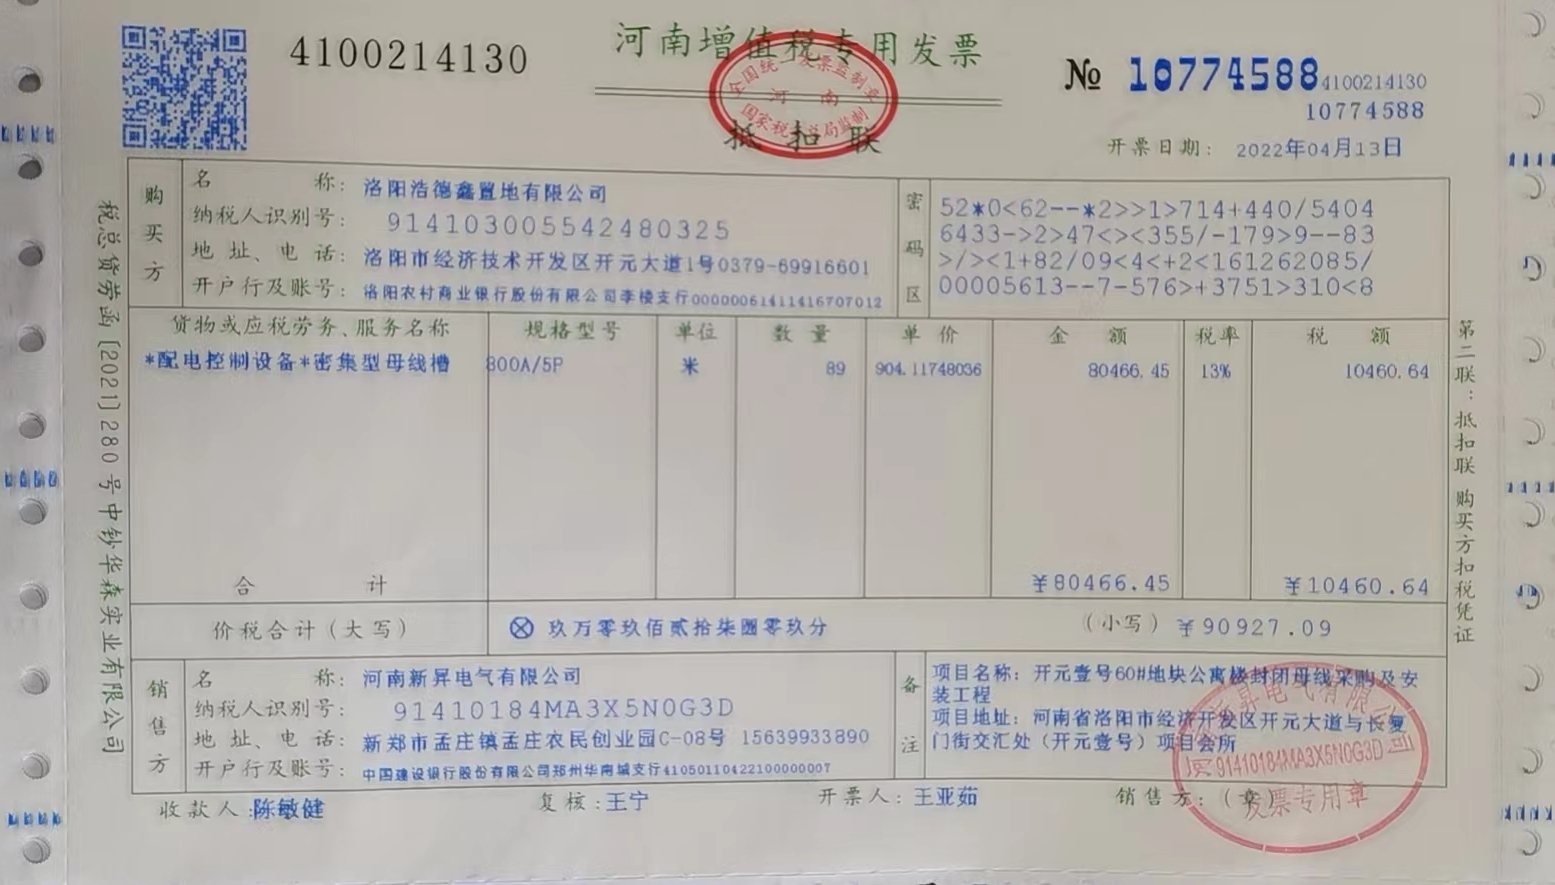 4100214130
河南增值税专用发票
全国统一发票监制章
河南
国家税务总局监制
抵扣联
№ 10774588
4100214130
10774588
开票日期: 2022年04月13日
税总货劳函[2021]280号中钞华森实业有限公司
购买方
名称: 洛阳浩德鑫置地有限公司
纳税人识别号: 914103005542480325
地址、电话: 洛阳市经济技术开发区开元大道1号0379-69916601
开户行及账号: 洛阳农村商业银行股份有限公司李楼支行00000061411416707012
密码区
52*0<62--*2>>1>714+440/5404
6433->2>47<><355/-179>9--83
>/><1+82/09<4<+2<161262085/
00005613--7-576>+3751>310<8
货物或应税劳务、服务名称 规格型号 单位 数量 单价 金额 税率 税额
*配电控制设备*密集型母线槽 800A/5P 米 89 904.11748036 80466.45 13% 10460.64
合计 ¥80466.45 ¥10460.64
价税合计(大写) ⊗ 玖万零玖佰贰拾柒圆零玖分 (小写) ¥90927.09
销售方
名称: 河南新昇电气有限公司
纳税人识别号: 91410184MA3X5N0G3D
地址、电话: 新郑市孟庄镇孟庄农民创业园C-08号 15639933890
开户行及账号: 中国建设银行股份有限公司郑州华南城支行41050110422100000007
备注
项目名称: 开元壹号60#地块公寓楼封闭母线采购及安
装工程
项目地址: 河南省洛阳市经济开发区开元大道与长夏
门街交汇处(开元壹号)项目会所
收款人:陈敏健 复核:王宁 开票人:王亚茹 销售方:(章)
91410184MA3X5N0G3D
发票专用章
第二联:抵扣联 购买方扣税凭证